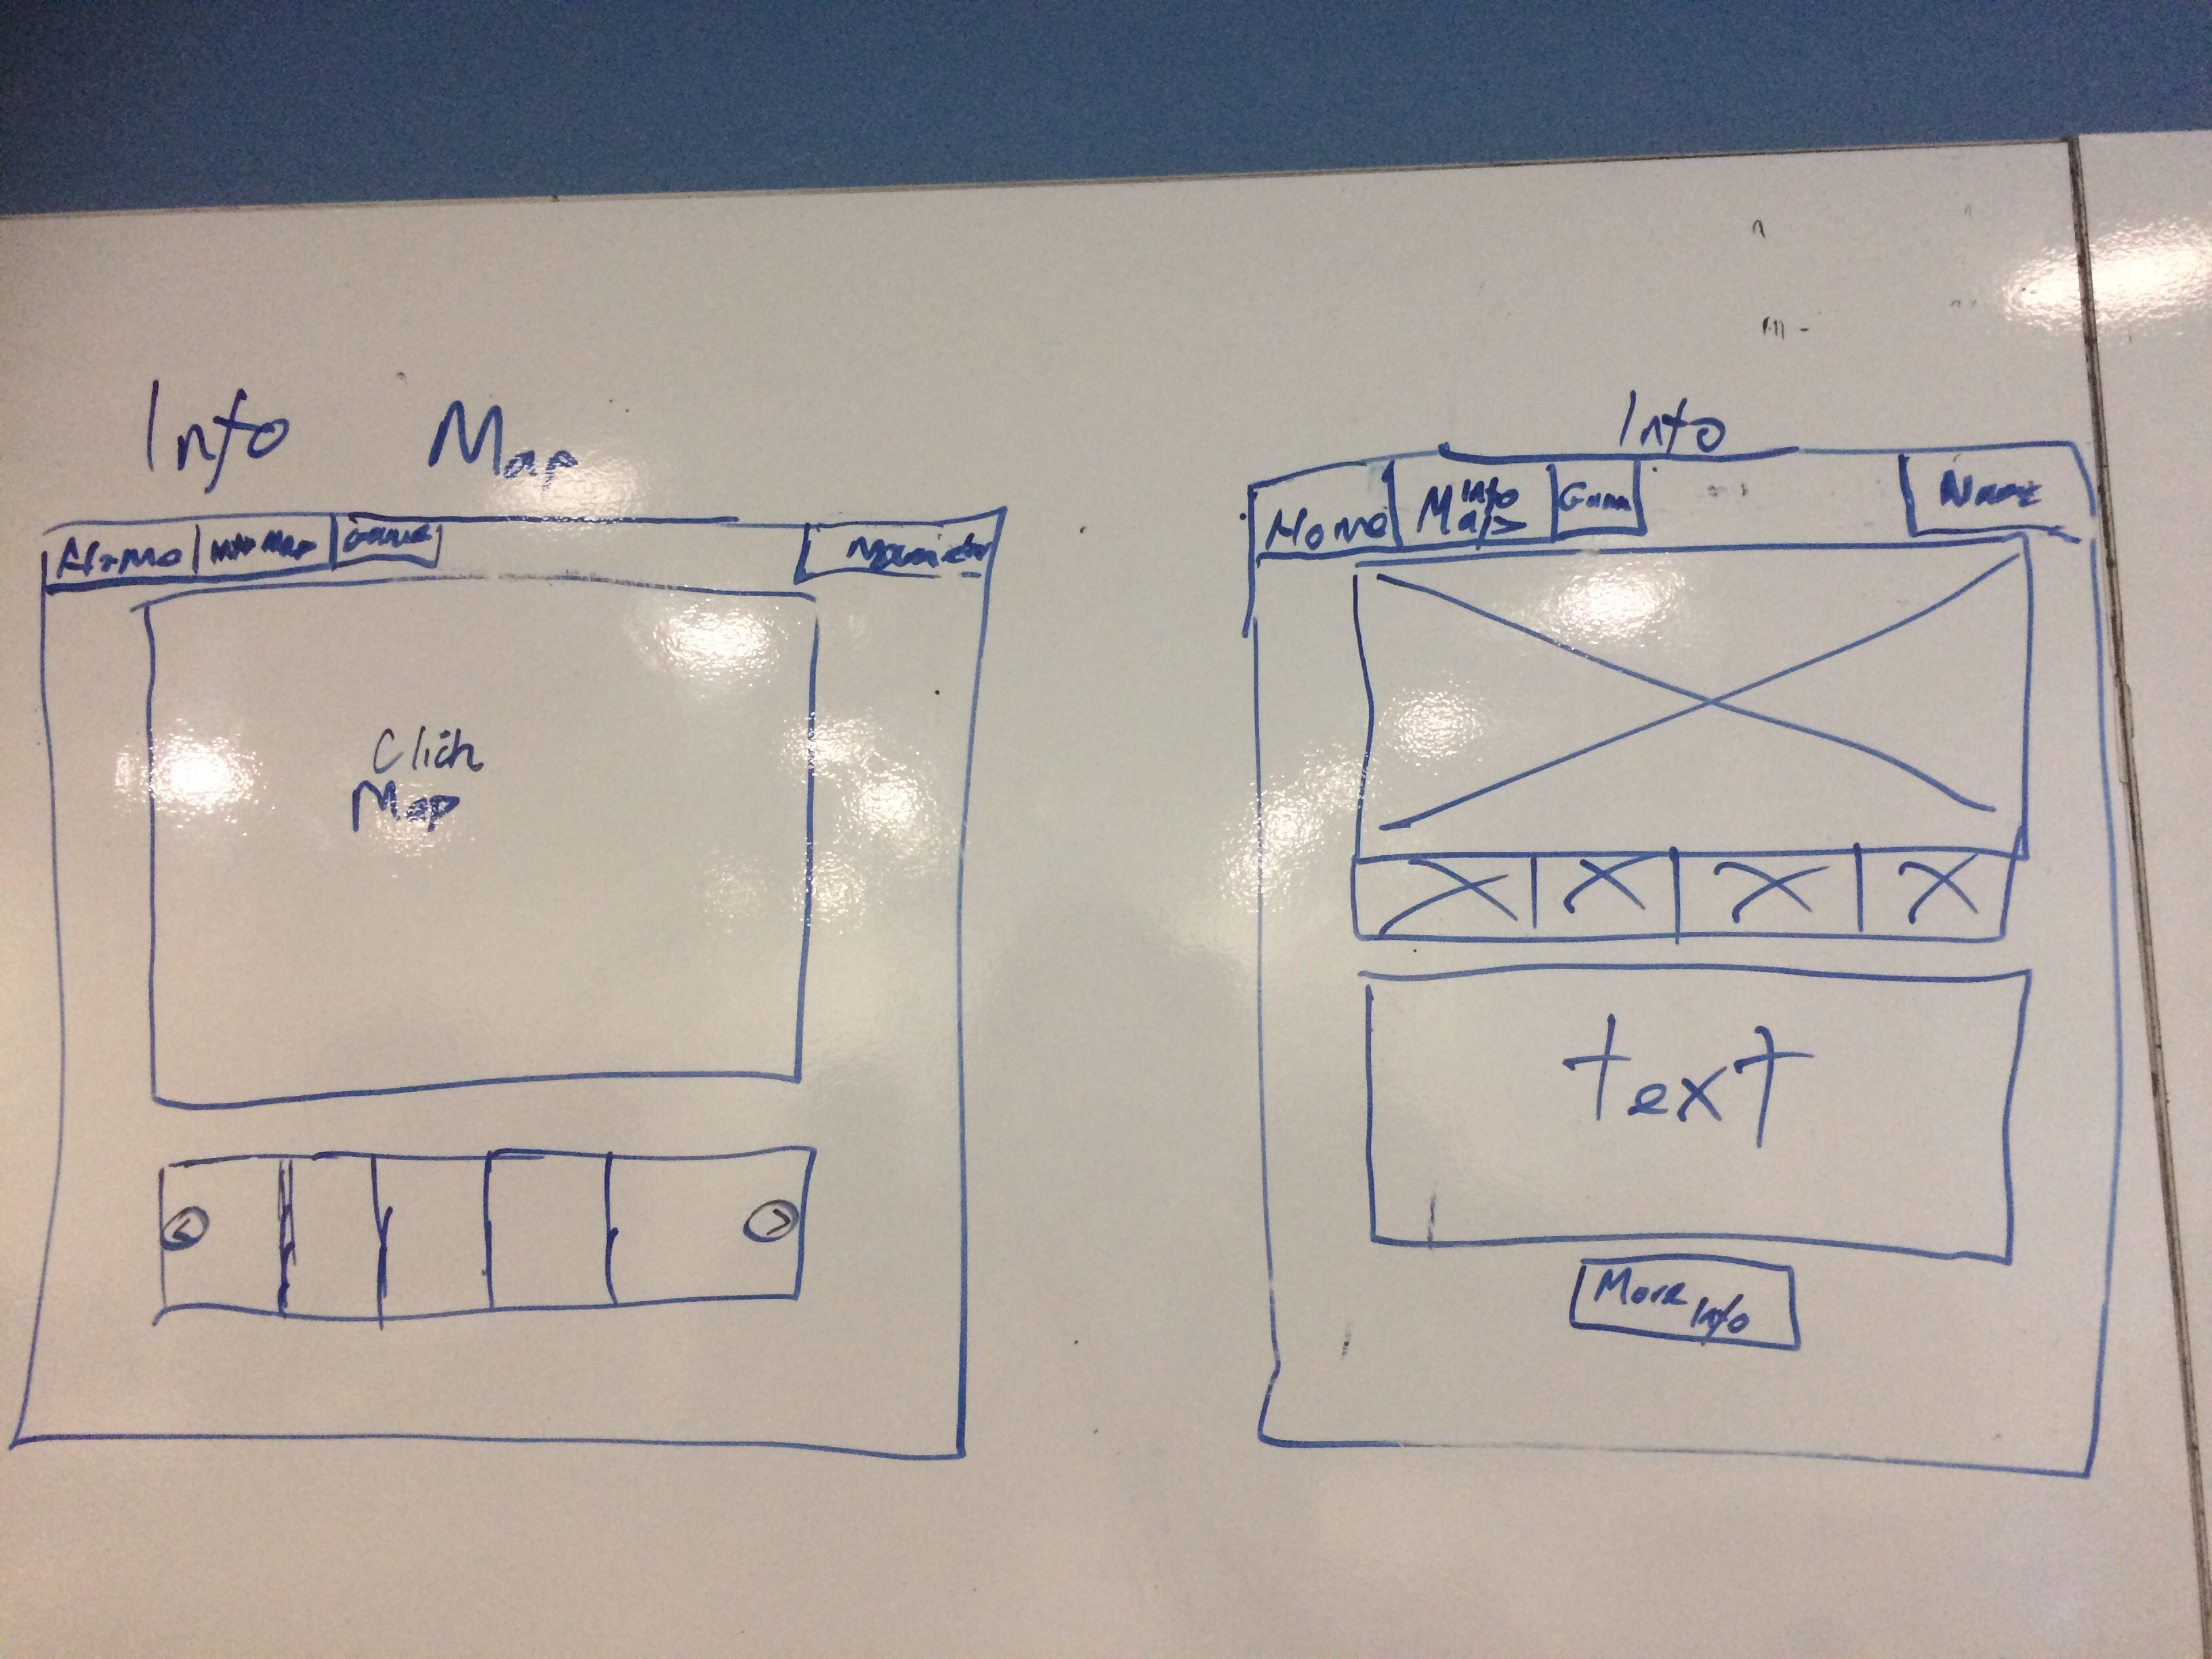 Info Map
Home Info Map Game
Click
Map
< >
Info
Home Info Map Game Name
text
More Info